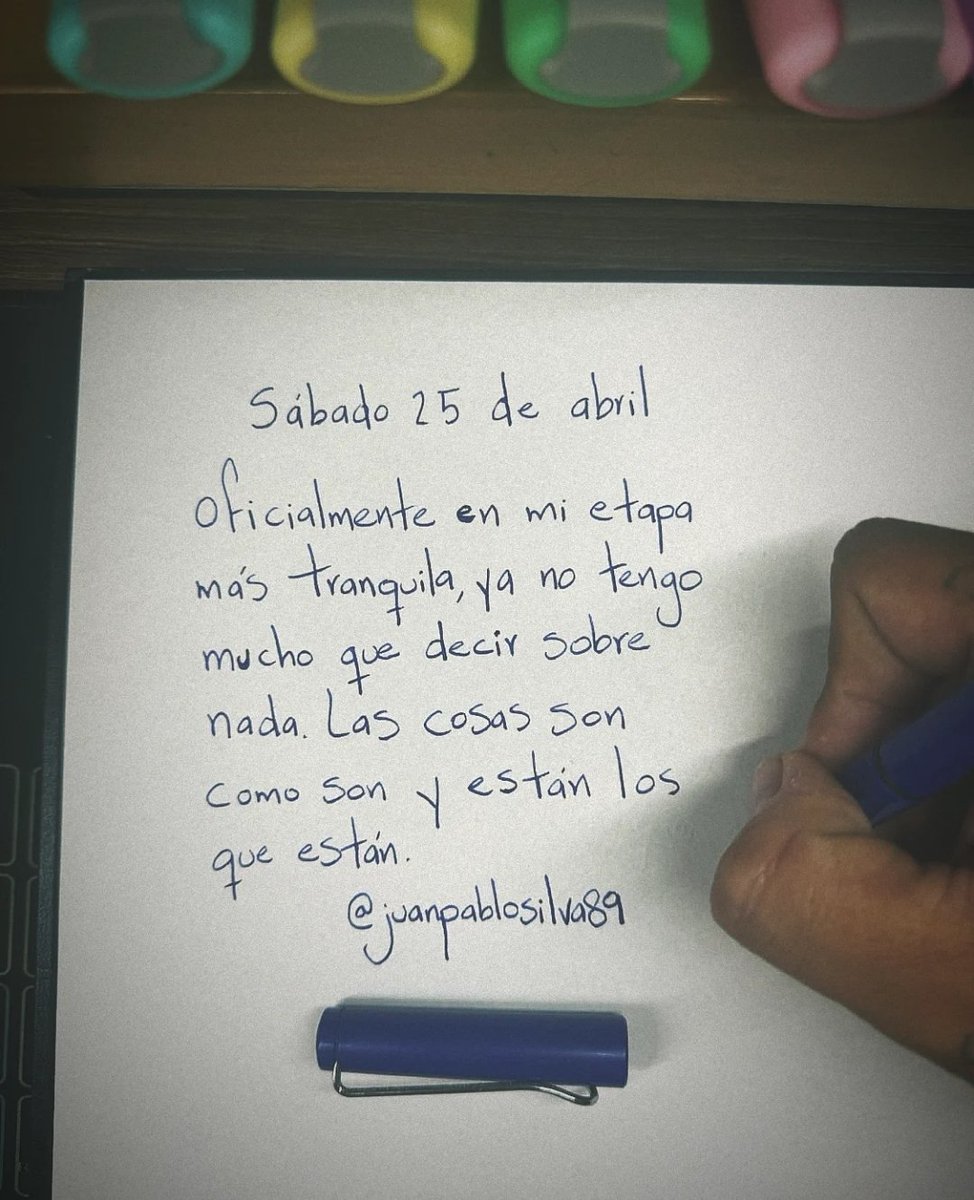 Sábado 25 de abril
Oficialmente en mi etapa
más tranquila, ya no tengo
mucho que decir sobre
nada. Las cosas son
como son y están los
que están.
@juanpablosilva89